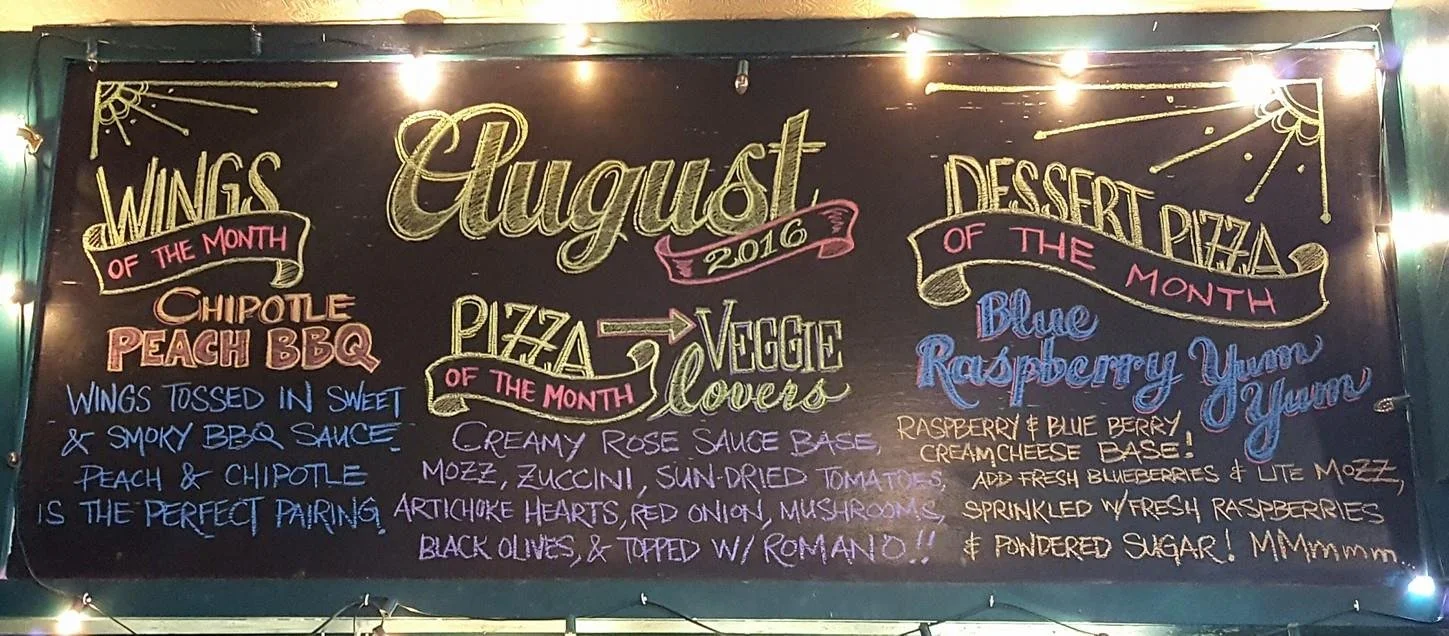 August
2016
WINGS
OF THE MONTH
CHIPOTLE
PEACH BBQ
WINGS TOSSED IN SWEET
& SMOKY BBQ SAUCE
PEACH & CHIPOTLE
IS THE PERFECT PAIRING
PIZZA → VEGGIE
OF THE MONTH lovers
CREAMY ROSE SAUCE BASE,
MOZZ, ZUCCINI, SUN-DRIED TOMATOES,
ARTICHOKE HEARTS, RED ONION, MUSHROOMS,
BLACK OLIVES, & TOPPED W/ ROMANO!!
DESSERT PIZZA
OF THE MONTH
Blue
Raspberry Yum
Yum
RASPBERRY & BLUE BERRY
CREAMCHEESE BASE!
ADD FRESH BLUEBERRIES & LITE MOZZ,
SPRINKLED W/FRESH RASPBERRIES
& POWDERED SUGAR! MMmmm